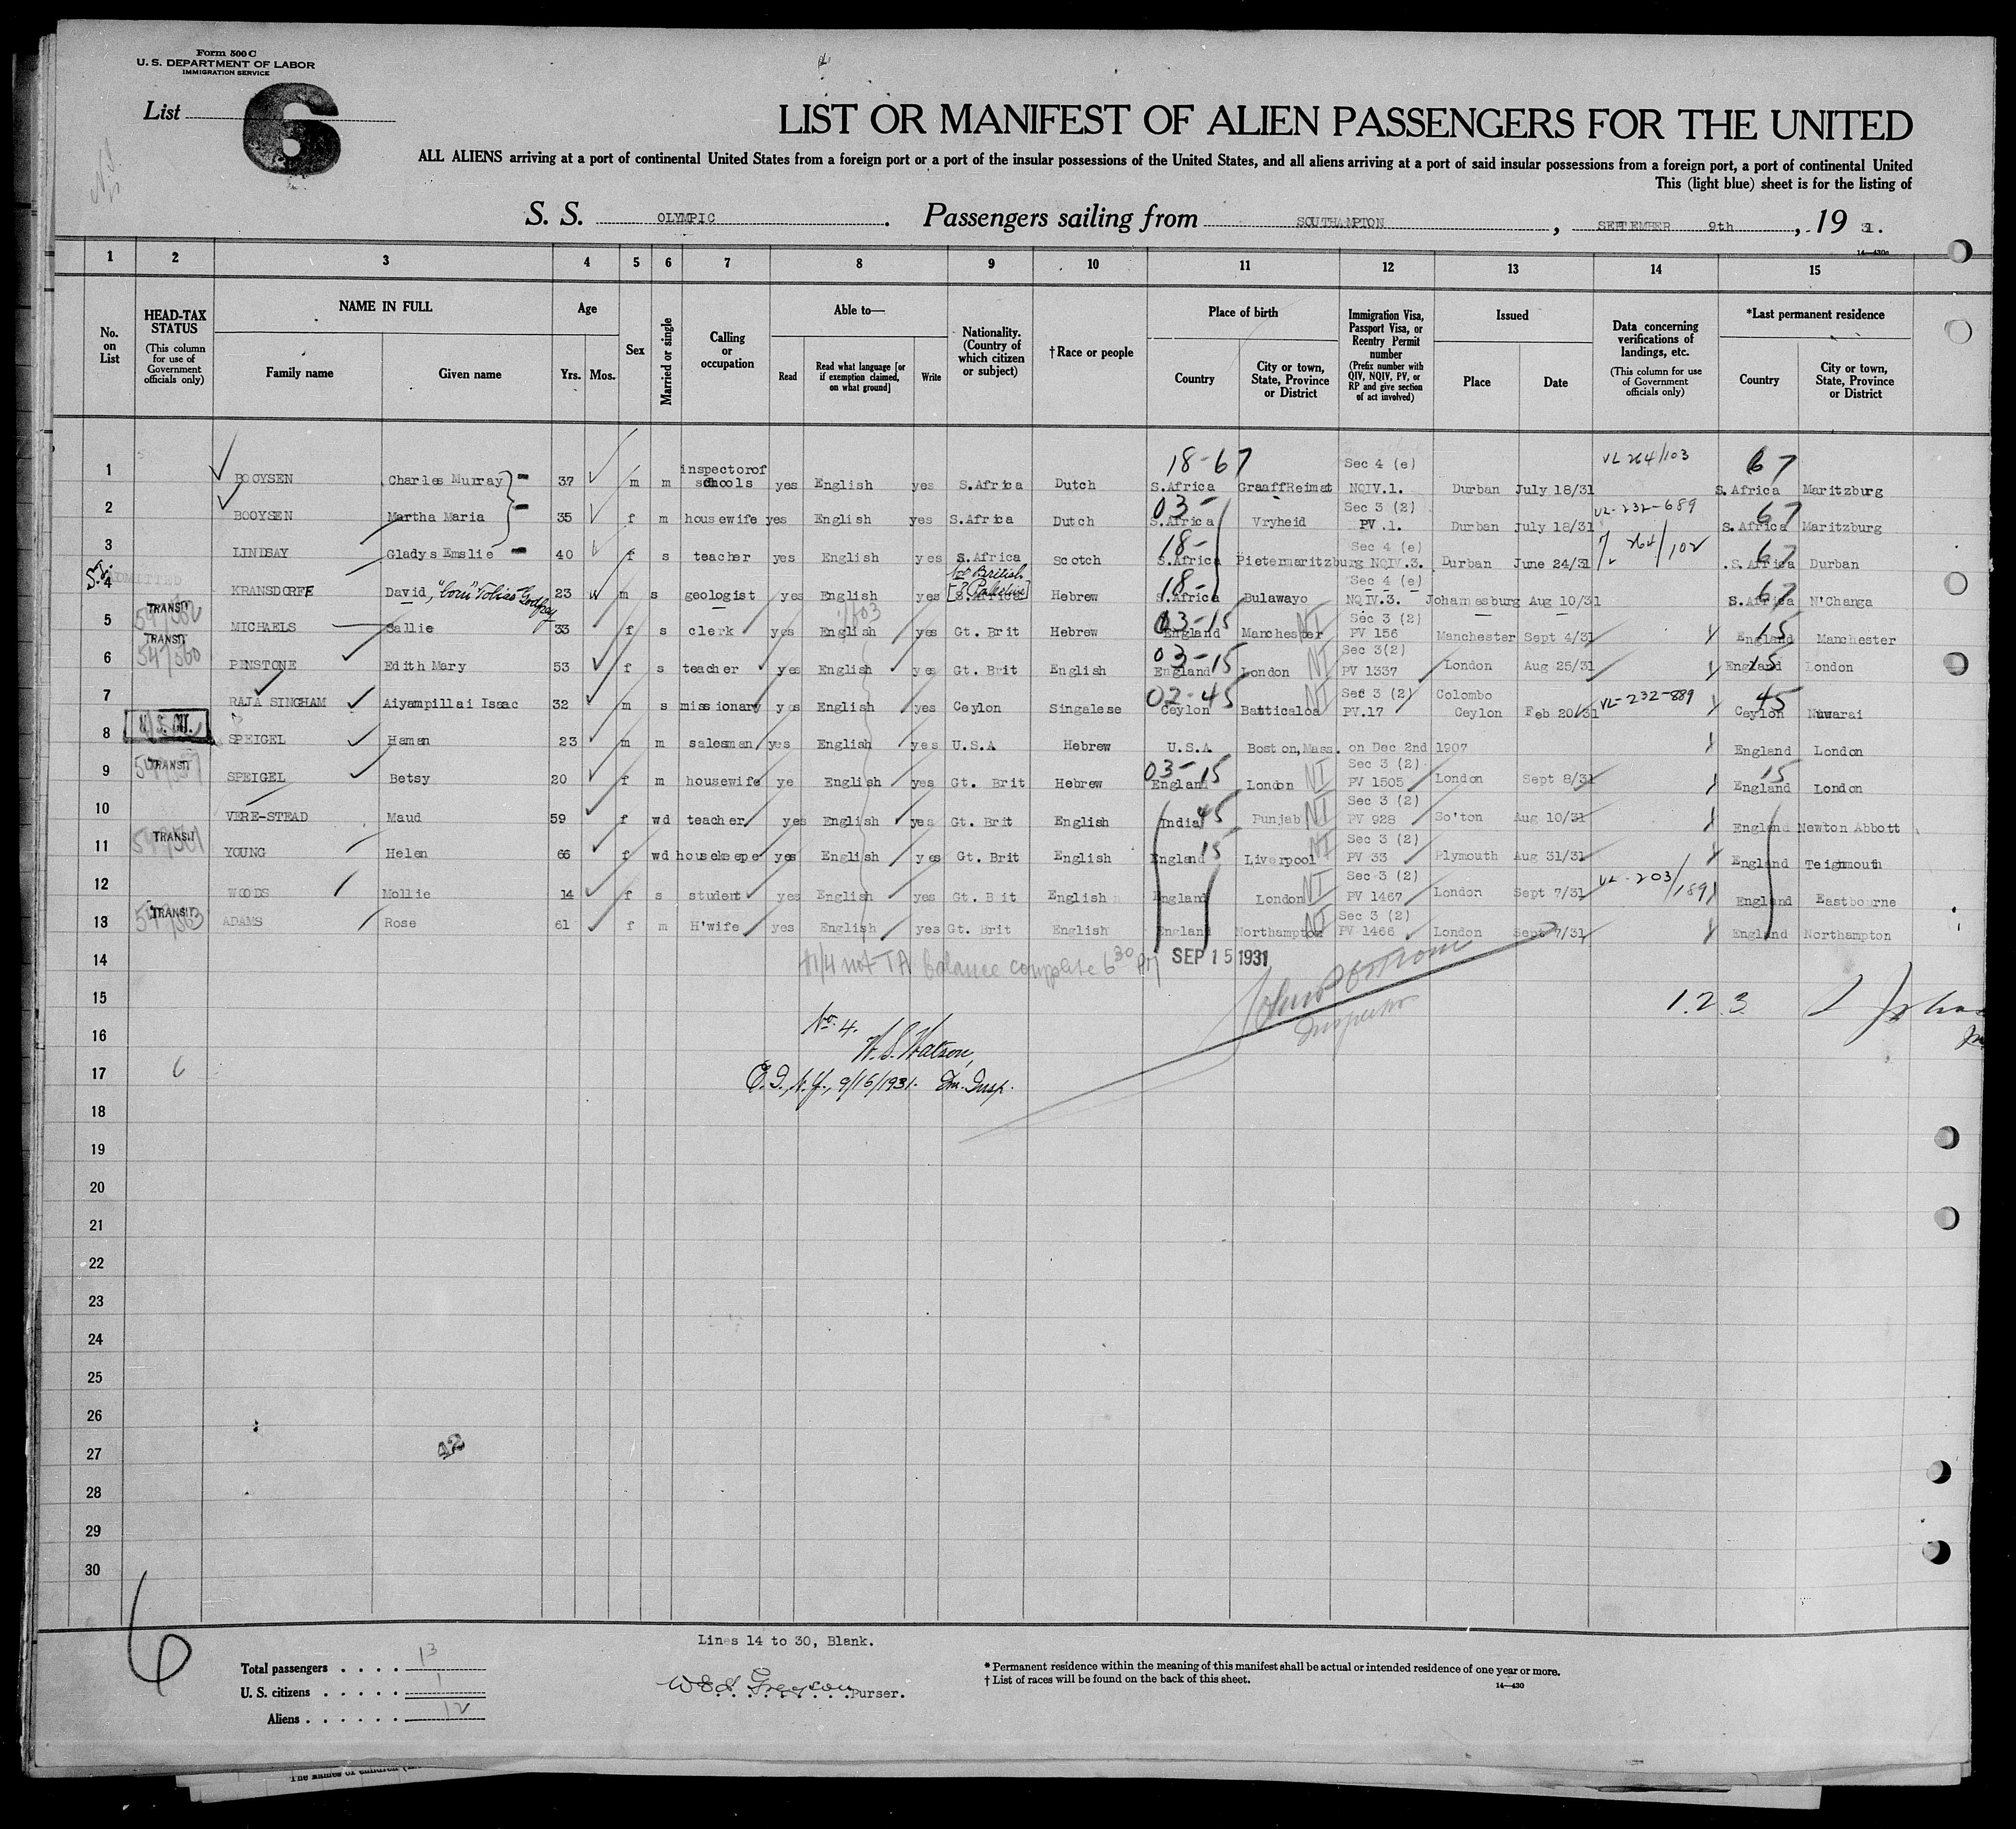 Form 500 C
U. S. DEPARTMENT OF LABOR
IMMIGRATION SERVICE
List 6
LIST OR MANIFEST OF ALIEN PASSENGERS FOR THE UNITED
ALL ALIENS arriving at a port of continental United States from a foreign port or a port of the insular possessions of the United States, and all aliens arriving at a port of said insular possessions from a foreign port, a port of continental United
This (light blue) sheet is for the listing of
S. S. OLYMPIC. Passengers sailing from SOUTHAMPTON, SEPTEMBER 9th, 19 31.
14—430a
1 2 3 4 5 6 7 8 9 10 11 12 13 14 15
No. on List
HEAD-TAX STATUS (This column for use of Government officials only)
NAME IN FULL
Family name Given name
Age
Yrs. Mos.
Sex
Married or single
Calling or occupation
Able to—
Read Read what language [or if exemption claimed, on what ground] Write
Nationality. (Country of which citizen or subject)
†Race or people
Place of birth
Country City or town, State, Province or District
Immigration Visa, Passport Visa, or Reentry Permit number (Prefix number with QIV, NQIV, PV, or RP and give section of act involved)
Issued
Place Date
Data concerning verifications of landings, etc. (This column for use of Government officials only)
*Last permanent residence
Country City or town, State, Province or District
18-67 Sec 4 (e) VL 264/103 67
1 BOOYSEN Charles Murray 37 m m inspectorof schools yes English yes S.Africa Dutch S.Africa GraaffReimet NQIV.1. Durban July 18/31 S.Africa Maritzburg
03- Sec 3 (2) VL-232-689 67
2 BOOYSEN Martha Maria 35 f m housewife yes English yes S.Africa Dutch S.Africa Vryheid PV .1. Durban July 18/31 S.Africa Maritzburg
18- Sec 4 (e) 264/102 67
3 LINDSAY Gladys Emslie 40 f s teacher yes English yes S.Africa Scotch S.Africa Pietermaritzburg NQIV.3. Durban June 24/31 S.Africa Durban
S.I. ADMITTED British Palestine 18- Sec 4 (e) 67
4 KRANSDORFF David, "Tobias Godfrey 23 m s geologist yes English yes S.Africa Hebrew S.Africa Bulawayo NQIV.3. Johannesburg Aug 10/31 S.Africa N'Changa
TRANSIT 03-15 NT Sec 3 (2) 15
5 MICHAELS Sallie 33 f s clerk yes English yes Gt. Brit Hebrew England Manchester PV 156 Manchester Sept 4/31 England Manchester
TRANSIT 547560 03-15 NT Sec 3(2) 15
6 PENSTONE Edith Mary 53 f s teacher yes English yes Gt. Brit English England London PV 1337 London Aug 25/31 England London
02-45 NT Sec 3 (2) Colombo VL-232-889 45
7 RAJA SINGHAM Aiyampillai Issac 32 m s missionary yes English yes Ceylon Singalese Ceylon Batticaloa PV.17 Ceylon Feb 20/31 Ceylon Nuwarai
U.S. CIT.
8 SPEIGEL Haman 23 m m salesman yes English yes U.S.A Hebrew U.S.A Boston,Mass. on Dec 2nd 1907 England London
TRANSIT 03-15 NT Sec 3 (2) 15
9 SPEIGEL Betsy 20 f m housewife ye English yes Gt. Brit Hebrew England London PV 1505 London Sept 8/31 England London
45 NT Sec 3 (2)
10 VERE-STEAD Maud 59 f wd teacher yes English yes Gt. Brit English India Punjab PV 928 So'ton Aug 10/31 England Newton Abbott
TRANSIT 15 NT Sec 3 (2)
11 YOUNG Helen 66 f wd housekeepe yes English yes Gt. Brit English England Liverpool PV 33 Plymouth Aug 31/31 England Teignmouth
NT Sec 3 (2) VL-203/1891
12 WOODS Mollie 14 f s student yes English yes Gt. B it English England London PV 1467 London Sept 7/31 England Eastbourne
TRANSIT NT Sec 3 (2)
13 ADAMS Rose 61 f m H'wife yes English yes Gt. Brit English England Northampton PV 1466 London Sept 7/31 England Northampton
14 #1/4 not TA balance complete 6 30 PM SEP 15 1931
Inspector
15 1.2.3
16 No. 4.
W. S. Watson,
17 6 E.I., N.Y., 9/15/1931. Im. Insp.
18
19
20
21
22
23
24
25
26
27 42
28
29
30
6
Lines 14 to 30, Blank.
Total passengers . . . . 13
U. S. citizens . . . . . 1
Aliens . . . . . . 12
W E S Greyson Purser.
* Permanent residence within the meaning of this manifest shall be actual or intended residence of one year or more.
† List of races will be found on the back of this sheet.
14—430